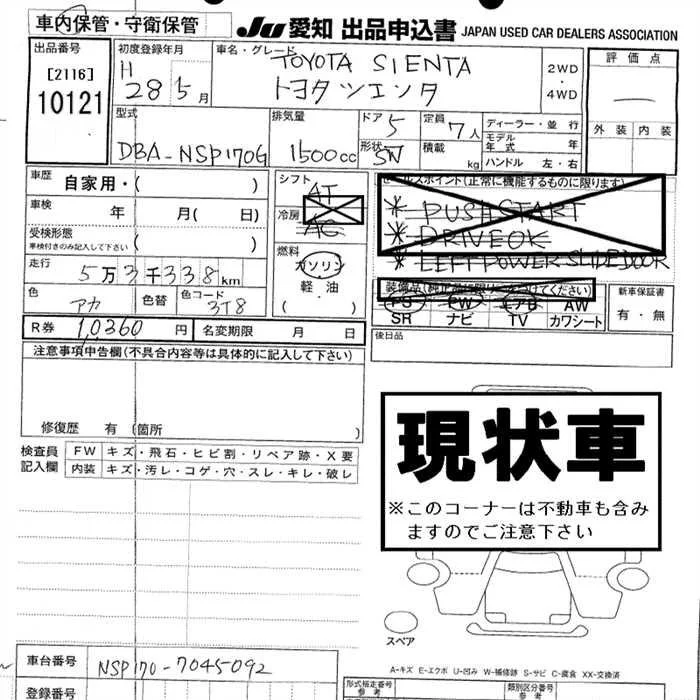 車内保管・守衛保管
JU 愛知 出品申込書 JAPAN USED CAR DEALERS ASSOCIATION
出品番号
[2116]
10121
初度登録年月
H 28 5月
車名・グレード
TOYOTA SIENTA
トヨタ シエンタ
2WD
4WD
評価点
外装 内装
型式
DBA-NSP170G
排気量
1500cc
ドア 5
形状 SW
定員 7人
積載 kg
ディーラー・並行
モデル年式 年
ハンドル 左・右
車歴 自家用・( )
車検 年 月( 日)
受検形態 ( )
車検付きのみ記入して下さい
走行 5万3千338km
色 アカ 色替 色コード 3T8
シフト AT
冷房 AC
燃料
ガソリン
軽・油
( )
セールスポイント(正常に機能するものに限ります)
* PUSH START
* DRIVE OK
* LEFT POWER SLIDE DOOR
PS PW エアB AW
SR ナビ TV カワシート
新車保証書
有・無
R券 10,360円 名変期限 月 日
後日品
注意事項申告欄(不具合内容等は具体的に記入して下さい)
修復歴 有 (箇所 )
検査員記入欄
FW キズ・飛石・ヒビ割・リペア跡・X要
内装 キズ・汚レ・コゲ・穴・スレ・キレ・破レ
現状車
※このコーナーは不動車も含み
ますのでご注意下さい
スペア
A-キズ E-エクボ U-凹み W-補修跡 S-サビ C-腐食 XX-交換済
車台番号 NSP170-7045092
登録番号
形式指定番号
参考
類別区分番号
参考